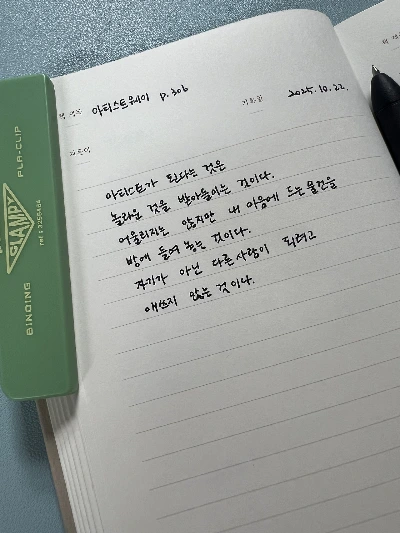 아티스트웨이 p.306
기록일 2025.10.22.
아티스트가 된다는 것은
놀라운 것을 받아들이는 것이다.
어울리지는 않지만 내 마음에 드는 물건을
방에 들여 놓는 것이다.
자기가 아닌 다른 사람이 되려고
애쓰지 않는 것이다.
PLA-CLIP
STAMPY
BINDING